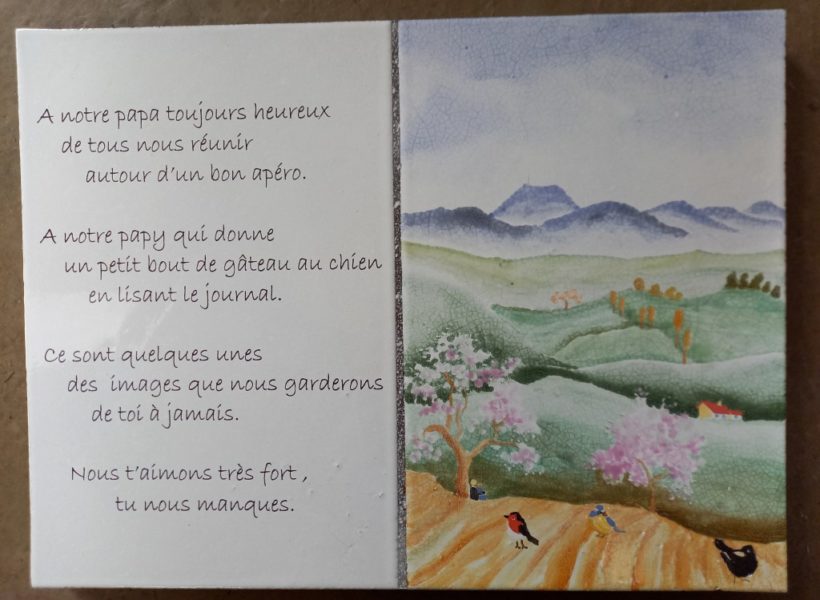 A notre papa toujours heureux
de tous nous réunir
autour d'un bon apéro.
A notre papy qui donne
un petit bout de gâteau au chien
en lisant le journal.
Ce sont quelques unes
des images que nous garderons
de toi à jamais.
Nous t'aimons très fort ,
tu nous manques.